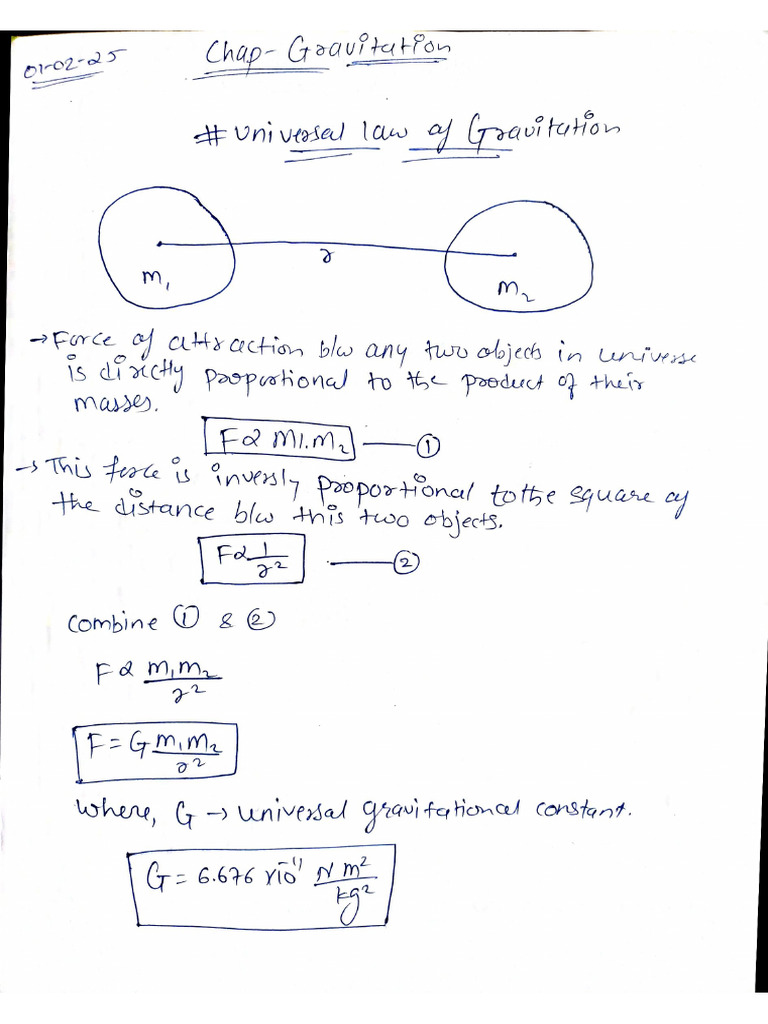 01-02-25
Chap- Gravitation
# Universal law of Gravitation
r
m₁
m₂
→ Force of attraction b/w any two objects in universe
is dirctly proportional to the product of their
masses.
F∝ M1.M₂ —— ①
→ This force is inversly proportional to the square of
the distance b/w this two objects.
F∝ 1/r² —— ②
Combine ① & ②
F ∝ m₁m₂/r²
F = G m₁m₂/r²
Where, G → universal gravitational constant.
G = 6.676 x10⁻¹¹ N m²/kg²